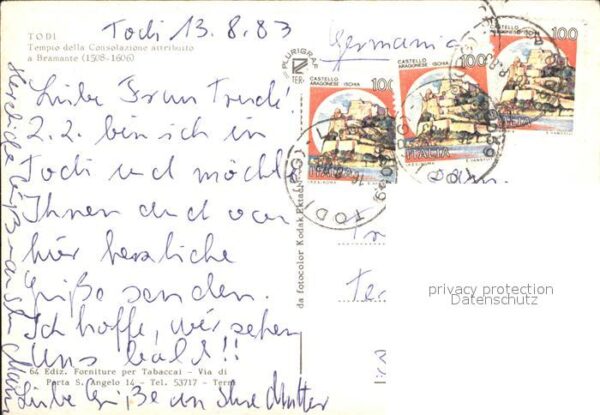 Todi 13.8.83
TODI
Tempio della Consolazione attribuito
a Bramante (1508-1606)
Germania
Liebe Frau Trude!
Z.Z. bin ich in
Todi und möchte
Ihnen auch von
hier herzliche
Grüße senden.
Ich hoffe, wir sehen
uns bald!!
Liebe Grüße an Ihre Mutter
Herzliche Grüße an den Mann
64 Ediz. Forniture per Tabaccai - Via di
Porta S. Angelo 14 - Tel. 53717 - Terni
PLURIGRAF
TER
da fotocolor Kodak Ekta
CASTELLO
ARAGONESE ISCHIA
100
ITALIA
CASTELLO
ARAGONESE ISCHIA
100
ITALIA
CASTELLO
ARAGONESE ISCHIA
100
TODI
privacy protection
Datenschutz